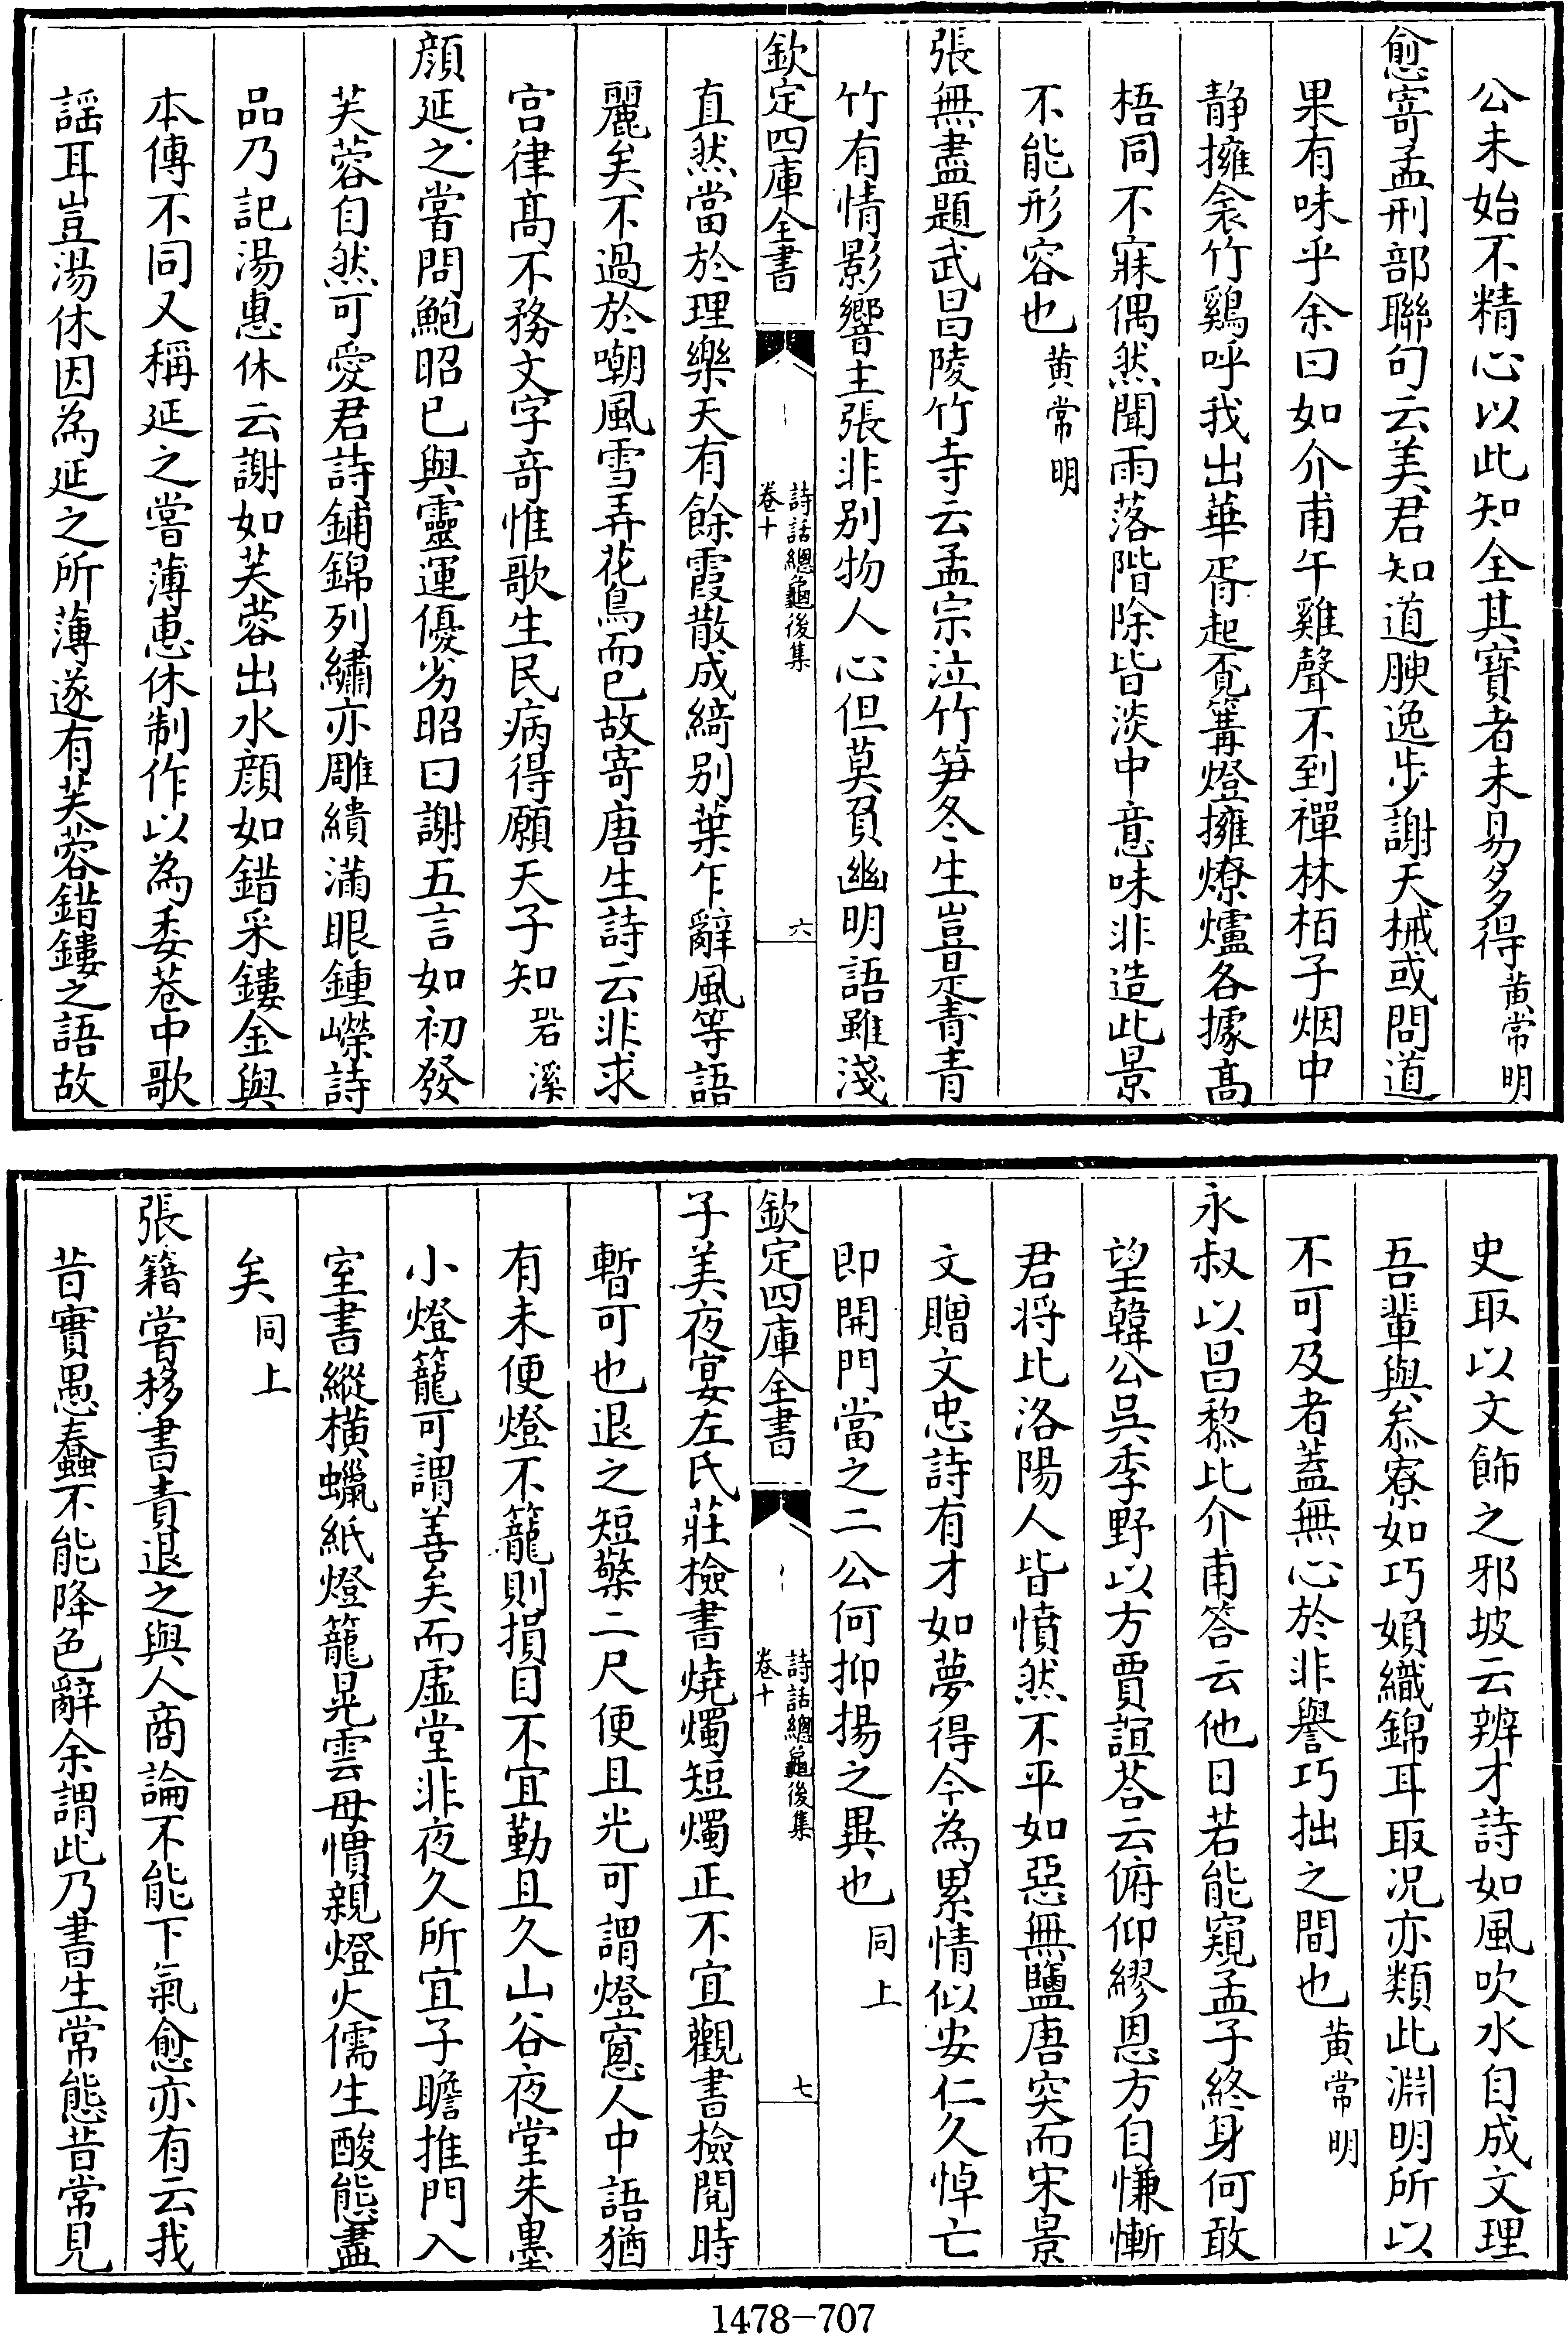 公未始不精心以此知全其寳者未易多得黄常明
愈寄孟刑部聯句云美君知道腴逸步謝天械或問道
果有味乎余曰如介甫午雞聲不到禪林栢子烟中
静擁衾竹鷄呼我出華胥起覔篝燈擁燎爐各據髙
梧同不寐偶然聞雨落階除皆淡中意味非造此景
不能形容也黄常明
張無盡題武昌陵竹寺云孟宗泣竹笋冬生豈是青青
竹有情影響主張非别物人心但莫負幽明語雖淺
欽定四庫全書
詩話總龜後集
卷十
六
直然當於理樂天有餘霞散成綺别葉乍辭風等語
麗矣不過於嘲風雪弄花鳥而已故寄唐生詩云非求
宫律髙不務文字竒惟歌生民病得願天子知䂬溪
顔延之嘗問鮑昭已與靈運優劣昭曰謝五言如初發
芙蓉自然可愛君詩鋪錦列繡亦雕繢滿眼鍾嶸詩
品乃記湯惠休云謝如芙蓉出水顔如錯采鏤金與
本傳不同又稱延之嘗薄恵休制作以為委巷中歌
謡耳豈湯休因為延之所薄遂有芙蓉錯鏤之語故
史取以文飾之邪坡云辨才詩如風吹水自成文理
吾輩與叅寮如巧媍織錦耳取况亦類此淵明所以
不可及者葢無心於非譽巧拙之間也黄常明
永叔以昌黎比介甫答云他日若能窺孟子終身何敢
望韓公吳季野以方賈誼荅云俯仰繆恩方自慊慚
君将比洛陽人皆憤然不平如惡無鹽唐突而宋景
文贈文忠詩有才如夢得今為累情似安仁久悼亡
即開門當之二公何抑揚之異也同上
欽定四庫全書
詩話總龜後集
卷十
七
子美夜宴左氏莊檢書燒燭短燭正不宜觀書檢閱時
暫可也退之短檠二尺便且光可謂燈窻人中語猶
有未便燈不籠則損目不宜勤且久山谷夜堂朱墨
小燈籠可謂善矣而虚堂非夜久所宜子瞻推門入
室書縱横蠟紙燈籠晃雲母慣親燈火儒生酸態盡
矣同上
張籍嘗移書責退之與人商論不能下氣愈亦有云我
昔實愚蠢不能降色辭余謂此乃書生常態昔常見
1478-707